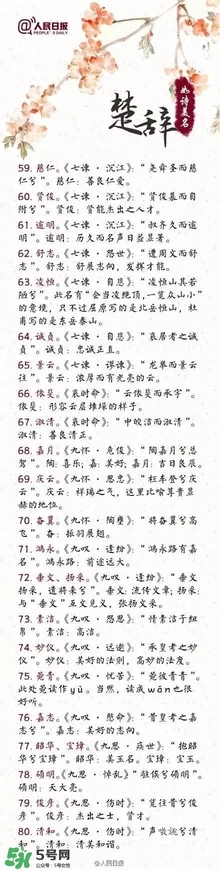 人民日报
PEOPLE'S DAILY
如诗美名
楚辞
59. 慈仁。《七谏·沉江》：“尧舜圣而慈
仁兮”。慈仁：善良仁爱。
60. 贤俊。《七谏·沉江》：“贤俊慕而自
附兮”。贤俊：贤能杰出之人才。
61. 逾明。《七谏·沉江》：“叔齐久而逾
明”。逾明：历久而名声日益显著。
62. 舒志。《七谏·怨世》：“遭周文而舒
志”。舒志：舒展志向，发挥才能。
63. 凌恒。《七谏·自悲》：“凌恒山其若
陋兮”。此名有“会当凌绝顶，一览众山小”
的意境，只不过屈原写的是北岳恒山，杜
甫写的是东岳泰山。
64. 诚贞。《七谏·自悲》：“哀居者之诚
贞”。诚贞：忠诚正直。
65. 景云。《七谏·谬谏》：“龙举而景云
往”。景云：浓厚而有光亮的云。
66. 依斐。《哀时命》：“云依斐而承宇”。
依斐：形容云层堆垛的样子。
67. 淑清。《哀时命》：“中皎洁而淑清”。
淑清：善良清正。
68. 嘉月。《九怀·危俊》：“陶嘉月兮总
驾”。陶：喜乐；嘉：美好；嘉月：吉日良辰。
69. 庆云。《九怀·思忠》：“枉车登兮庆
云”。庆云：祥瑞之气，这里比喻尊贵显
赫的地位。
70. 奋翼。《九怀·陶壅》：“将奋翼兮高
飞”。奋：振羽展翅。
71. 鸿永。《九叹·逢纷》：“鸿永路有嘉
名”。鸿永路：前途远大。
72. 垂文、扬采。《九叹·逢纷》：“垂文
扬采，遗将来兮”。垂文：流传文章；扬采：
与“垂文”互文见义，张扬文采。
73. 素洁。《九叹·怨思》：“情素洁于纽
帛”。素洁：高洁。
74. 妙仪。《九叹·远逝》：“承皇考之妙
仪”。妙仪：美好的法则，高妙的法度。
75. 菀青。《九叹·忧苦》：“菀彼青青”。
此处菀读作yù。当然，读成wǎn也很
好听。
76. 嘉志。《九叹·愍命》：“昔皇考之嘉
志兮”。嘉志：美好的志向。
77. 昭华、宝璋。《九思·疾世》：“抱昭
华兮宝璋”。昭华：美玉名。宝璋：玉。
78. 硕明。《九思·悼乱》“跓俟兮硕明”。
硕明：天大亮。
79. 俊彦。《九思·伤时》：“览往昔兮俊
彦”。俊彦：杰出之士，贤才。
80. 清和。《九思·伤时》：“声噭誂兮清
和”。清和：清美和谐。
5号网
公众号：5号女性
@人民日报